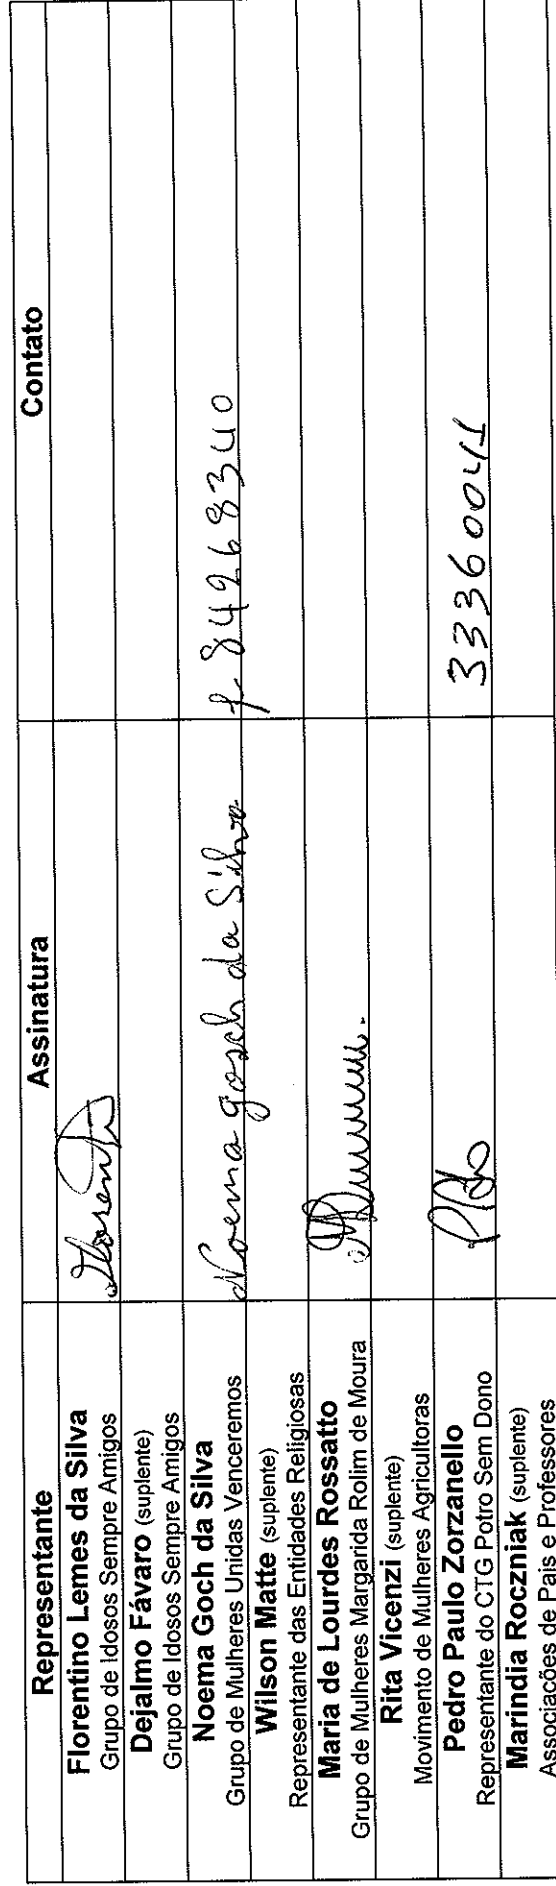 Representante Assinatura Contato
Florentino Lemes da Silva
Grupo de Idosos Sempre Amigos
Dejalmo Fávaro (suplente)
Grupo de Idosos Sempre Amigos
Noema Goch da Silva Noema gosch da Silva 84268340
Grupo de Mulheres Unidas Venceremos
Wilson Matte (suplente)
Representante das Entidades Religiosas
Maria de Lourdes Rossatto
Grupo de Mulheres Margarida Rolim de Moura
Rita Vicenzi (suplente)
Movimento de Mulheres Agricultoras
Pedro Paulo Zorzanello 33360041
Representante do CTG Potro Sem Dono
Marindia Roczniak (suplente)
Associações de Pais e Professores